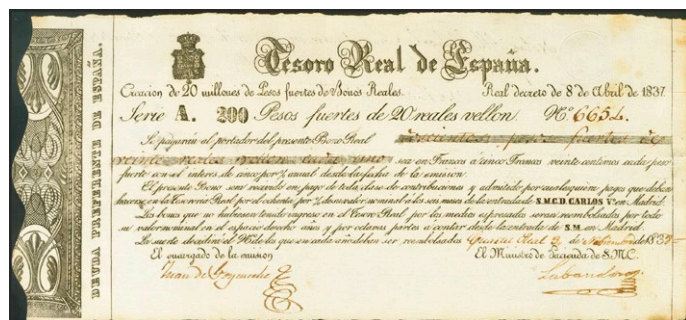 Tesoro Real de España.
Creacion de 20 millones de Pesos fuertes de Bonos Reales. Real decreto de 8 de Abril de 1837.
Serie A. 200 Pesos fuertes de 20 reales vellon. Nº 6654
Se pagarán al portador del presente Bono Real doscientos pesos fuertes de
veinte reales vellon cada uno sea en Francos a cinco Francos veinte centimos cada peso
fuerte con el interes de cinco por % anual desde la fecha de la emision.
El presente Bono será recibido en pago de toda clase de contribuciones y admitido por cualesquiera pagos que deban
hacerse en la Tesoreria Real por el ochenta por % de su valor nominal a los seis meses de la entrada de S.M.C.D. CARLOS Vº en Madrid.
Los bonos que no hubiesen tenido ingreso en el Tesoro Real por los medios espresados seran reembolsados por todo
su valor nominal en el espacio de ocho años y por octavas partes a contar desde la entrada de S.M. en Madrid.
La suerte decidirá el Nº de los que en cada año deben ser reembolsados Cuartel Real 2 de 1837
El encargado de la emision El Ministro de Hacienda de S.M.C.
Juan de
Labandero
DEUDA PREFERENTE DE ESPAÑA.